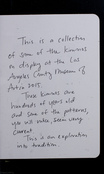 This is a collection
of some of the kimonos
on display at the Los
Angeles County Museum of
Art in 2015.
These kimonos are
hundreds of years old
and some of the patterns,
you will notice, seem very
current.
This is an exploration
into tradition.